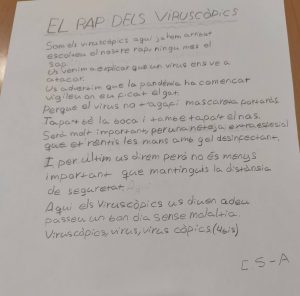 EL RAP DELS VIRUSCÒPICS
Som els viruscòpics aquí ja hem arribat
escolteu el nostre rap, ningu mes el
sap.
Us venim a explicar que un virus ens ve a
atacar.
Us advertim que la pandèmia ha començat
vigileu on eu picat el gat.
Perque el virus no t agafi mascareta portaràs
Tapat bé la boca i també tapat el nas.
Serà molt important per una neteja extra espesial
que et rentis les mans amb gel desinfectant.
I per últim us direm però no és menys
important que mantinguis la distància
de seguretat.
Aqui els Viruscòpics us diuen adeu
passeu un bon dia sense malaltia.
Viruscòpics, virus, virus còpics (4 bis)
C.S-A